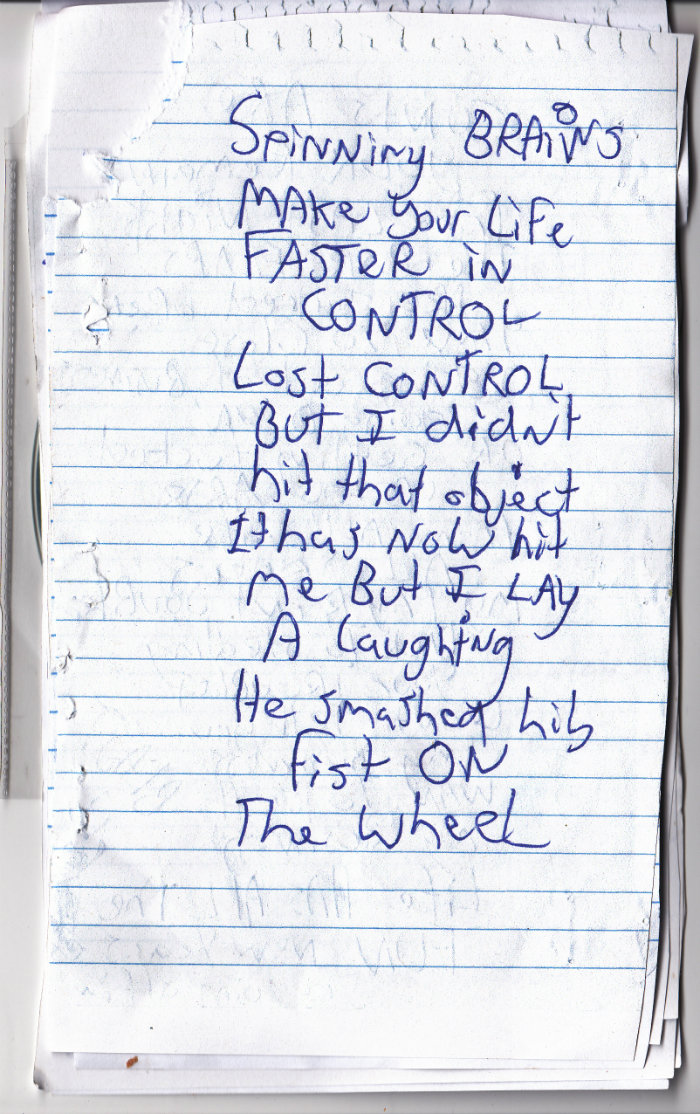 SPiNNiNy BRAiNS
MAKe your LiFe
FASTeR iN
CONTROL
Lost CONTROL
But I didnt
hit that object
It has NoW hit
me But I LAY
A Laughing
He smashed his
fist ON
The wheel